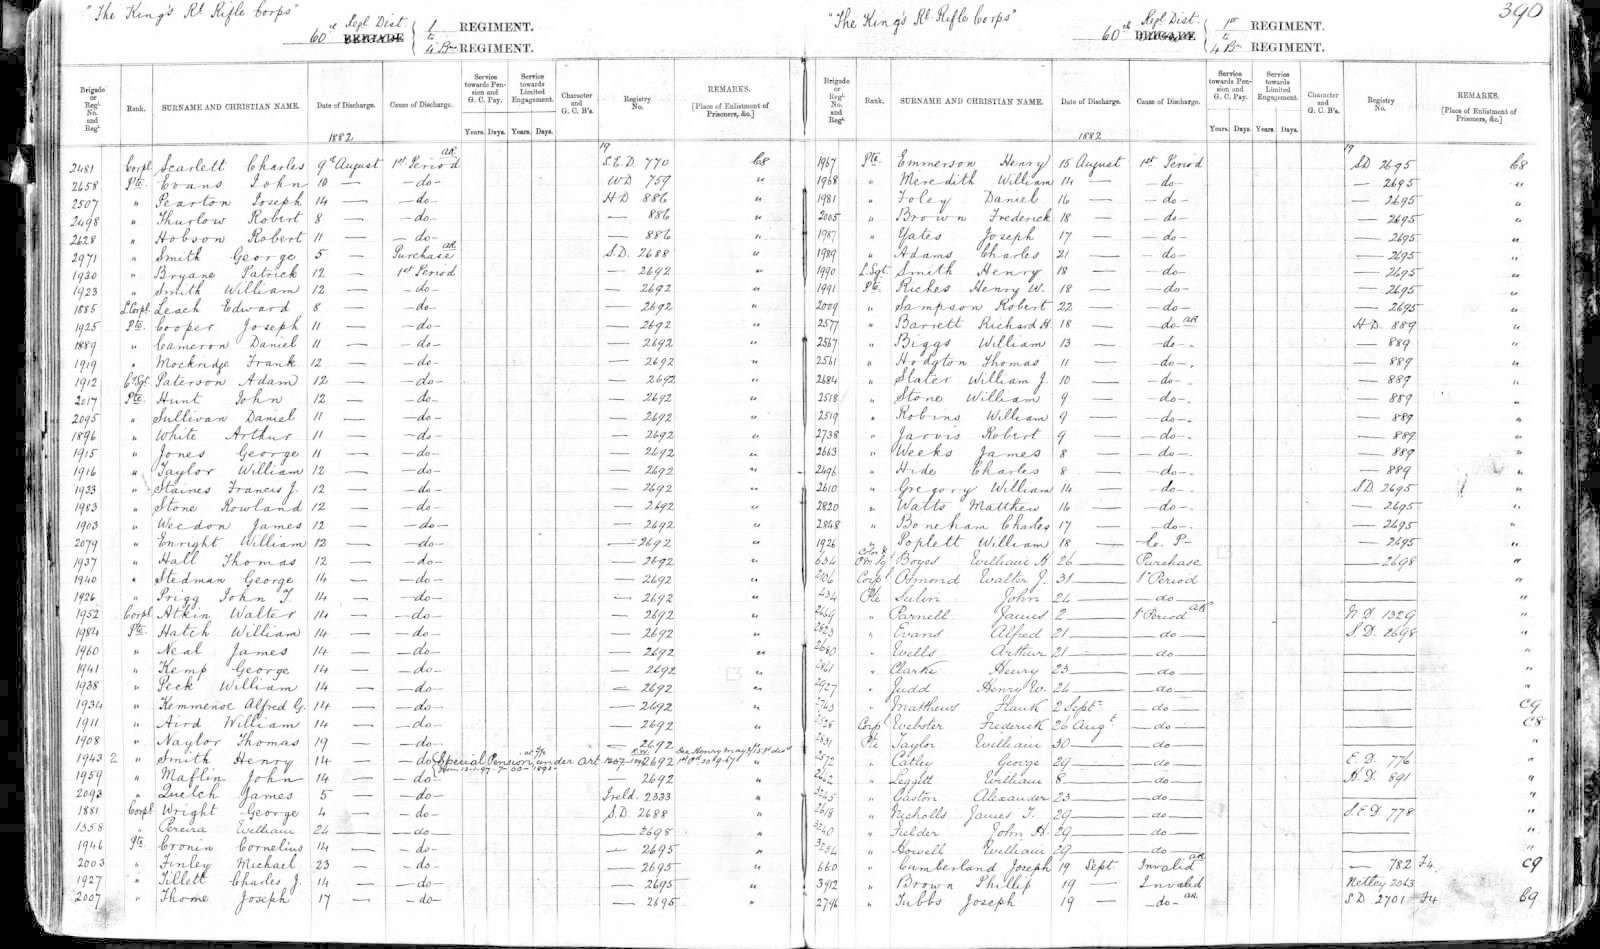 "The King's Rl. Rifle Corps"
60th Regl Dist. BRIGADE { 1 to 4 Bns REGIMENT. REGIMENT.
Brigade or Regl. No. and Regt. Rank. SURNAME AND CHRISTIAN NAME. Date of Discharge. Cause of Discharge. Service towards Pension and G. C. Pay. Service towards Limited Engagement. Character and G. C. B's. Registry No. REMARKS. [Place of Enlistment of Prisoners, &c.]
Years. Days. Years. Days.
1882
19
2481 Corpl Scarlett Charles 9th August 1st Period aR S.E.D. 770 C8
2658 Pte. Evans John 10 — —do— WD 759 "
2507 " Pearton Joseph 14 — —do— HD 886 "
2498 " Thurlow Robert 8 — —do— — 886 "
2628 " Hobson Robert 11 — —do— — 886 "
2971 " Smith George 5 — Purchase aR S.D. 2688 "
1930 " Bryane Patrick 12 — 1st Period — 2692 "
1923 " Smith William 12 — —do— — 2692 "
1885 L Corpl Leach Edward 8 — —do— — 2692 "
1925 Pte. Cooper Joseph 11 — —do— — 2692 "
1889 " Cameron Daniel 11 — —do— — 2692 "
1919 " Mockridge Frank 12 — —do— — 2692 "
1912 Cr Sgt. Paterson Adam 12 — —do— — 2692 "
2017 Pte. Hunt John 12 — —do— — 2692 "
2095 " Sullivan Daniel 11 — —do— — 2692 "
1896 " White Arthur 11 — —do— — 2692 "
1915 " Jones George 11 — —do— — 2692 "
1916 " Taylor William 12 — —do— — 2692 "
1933 " Staines Francis J. 12 — —do— — 2692 "
1983 " Stone Rowland 12 — —do— — 2692 "
1903 " Weedon James 12 — —do— — 2692 "
2079 " Enright William 12 — —do— — 2692 "
1937 " Hall Thomas 12 — —do— — 2692 "
1940 " Stedman George 14 — —do— — 2692 "
1926 " Prigg John T. 14 — —do— — 2692 "
1952 Corpl Atkin Walter 14 — —do— — 2692 "
1984 Pte. Hatch William 14 — —do— — 2692 "
1960 " Neal James 14 — —do— — 2692 "
1941 " Kemp George 14 — —do— — 2692 "
1938 " Peck William 14 — —do— — 2692 "
1934 " Kemmenoe Alfred G. 14 — —do— — 2692 "
1911 " Aird William 14 — —do— — 2692 "
1908 " Naylor Thomas 19 — —do— — 2692
1943 2 " Smith Henry 14 — —do— Special Pension under Art 2692 "
1959 " Maflin John 14 — —do— 2692 "
2093 " Quelch James 5 — —do— Ireld. 2333 "
1881 Corpl Wright George 4 — —do— S.D. 2688 "
1358 " Pereira William 24 — —do— — 2698 "
1946 Pte. Cronin Cornelius 14 — —do— — 2695 "
2003 " Finley Michael 23 — —do— — 2695 "
1927 " Tillett Charles J. 14 — —do— — 2695 "
2007 " Thome Joseph 17 — —do— — 2695 "
390
"The King's Rl. Rifle Corps"
60th Regl Dist. BRIGADE { 1st to 4 Bn REGIMENT. REGIMENT.
Brigade or Regl. No. and Regt. Rank. SURNAME AND CHRISTIAN NAME. Date of Discharge. Cause of Discharge. Service towards Pension and G. C. Pay. Service towards Limited Engagement. Character and G. C. B's. Registry No. REMARKS. [Place of Enlistment of Prisoners, &c.]
Years. Days. Years. Days.
1882
19
1967 Pte. Emmerson Henry 15 August 1st Period SD 2695 C8
1968 " Meredith William 14 — —do— — 2695 "
1981 " Foley Daniel 16 — —do— — 2695 "
2005 " Brown Frederick 18 — —do— — 2695 "
1987 " Yates Joseph 17 — —do— — 2695 "
1989 " Adams Charles 21 — —do— — 2695 "
1990 L. Sgt. Smith Henry 18 — —do— — 2695 "
1991 Pte. Riches Henry W. 18 — —do— — 2695 "
2009 " Sampson Robert 22 — —do— — 2695 "
2577 " Barrett Richard H. 18 — —do— aR HD. 889 "
2567 " Biggs William 13 — —do— — 889 "
2561 " Hodgton Thomas 11 — —do— — 889 "
2684 " Slater William J. 10 — —do— — 889 "
2518 " Stone William 9 — —do— — 889 "
2519 " Robins William 9 — —do— — 889 "
2738 " Jarvis Robert 9 — —do— — 889 "
2663 " Weeks James 8 — —do— — 889 "
2496 " Hide Charles 8 — —do— — 889 "
2610 " Gregory William 14 — —do— SD. 2695 "
2820 " Watts Matthew 16 — —do— — 2695 "
2848 " Boneham Charles 17 — —do— — 2695 "
1926 " Poplett William 18 — C. P— — 2695 "
634 Color Boyes William H 26 — Purchase — 2698 "
2106 Corpl Osmond Walter J. 31 — 1st Period — "
434 Pte John 24 — —do— — "
2649 " Parnell James 2 — 1st Period aR N.D. 1329 "
2623 " Evans Alfred 21 — —do— S.D. 2698 "
2680 " Wells Arthur 21 — —do— — "
2861 " Clarke Henry 23 — —do— — "
2927 " Judd Henry W. 24 — —do— — "
2763 " Matthews Frank 2 Sept. —do— — C9
2528 Corpl Webster Frederick 26 Augt. —do— — C8
2531 Pte Taylor William 30 — —do— — "
2572 " Catley George 29 — —do— E.D. 776 "
2642 " Leggett William 8 — —do— H.D. 891 "
3265 " Gaston Alexander 23 — —do— — "
2618 " Nicholls James T. 29 — —do— S.E.D. 778 "
3240 " Fielder John H. 29 — —do— — "
3254 " Howell William 29 — —do— — "
660 " Cumberland Joseph 19 Sept. Invalid aR — 782 F4 C9
3912 " Brown Phillip 19 — Invalid Netley 2063
2796 " Tubbs Joseph 19 — —do— aR SD 2701 F4 C9